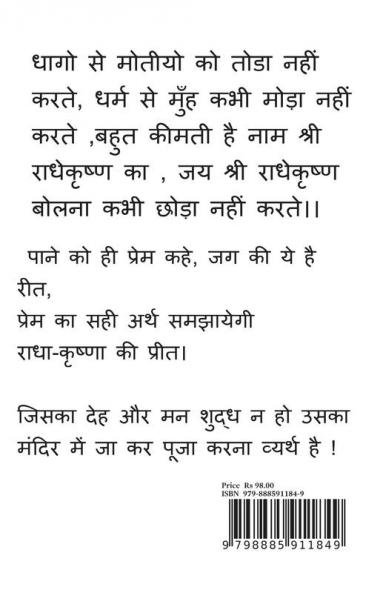 धागो से मोतीयो को तोडा नहीं
करते, धर्म से मुँह कभी मोड़ा नहीं
करते ,बहुत कीमती है नाम श्री
राधेकृष्ण का , जय श्री राधेकृष्ण
बोलना कभी छोड़ा नहीं करते।।
पाने को ही प्रेम कहे, जग की ये है
रीत,
प्रेम का सही अर्थ समझायेगी
राधा-कृष्णा की प्रीत।
जिसका देह और मन शुद्ध न हो उसका
मंदिर में जा कर पूजा करना व्यर्थ है !
Price Rs 98.00
ISBN 979-888591184-9
9 798885 911849